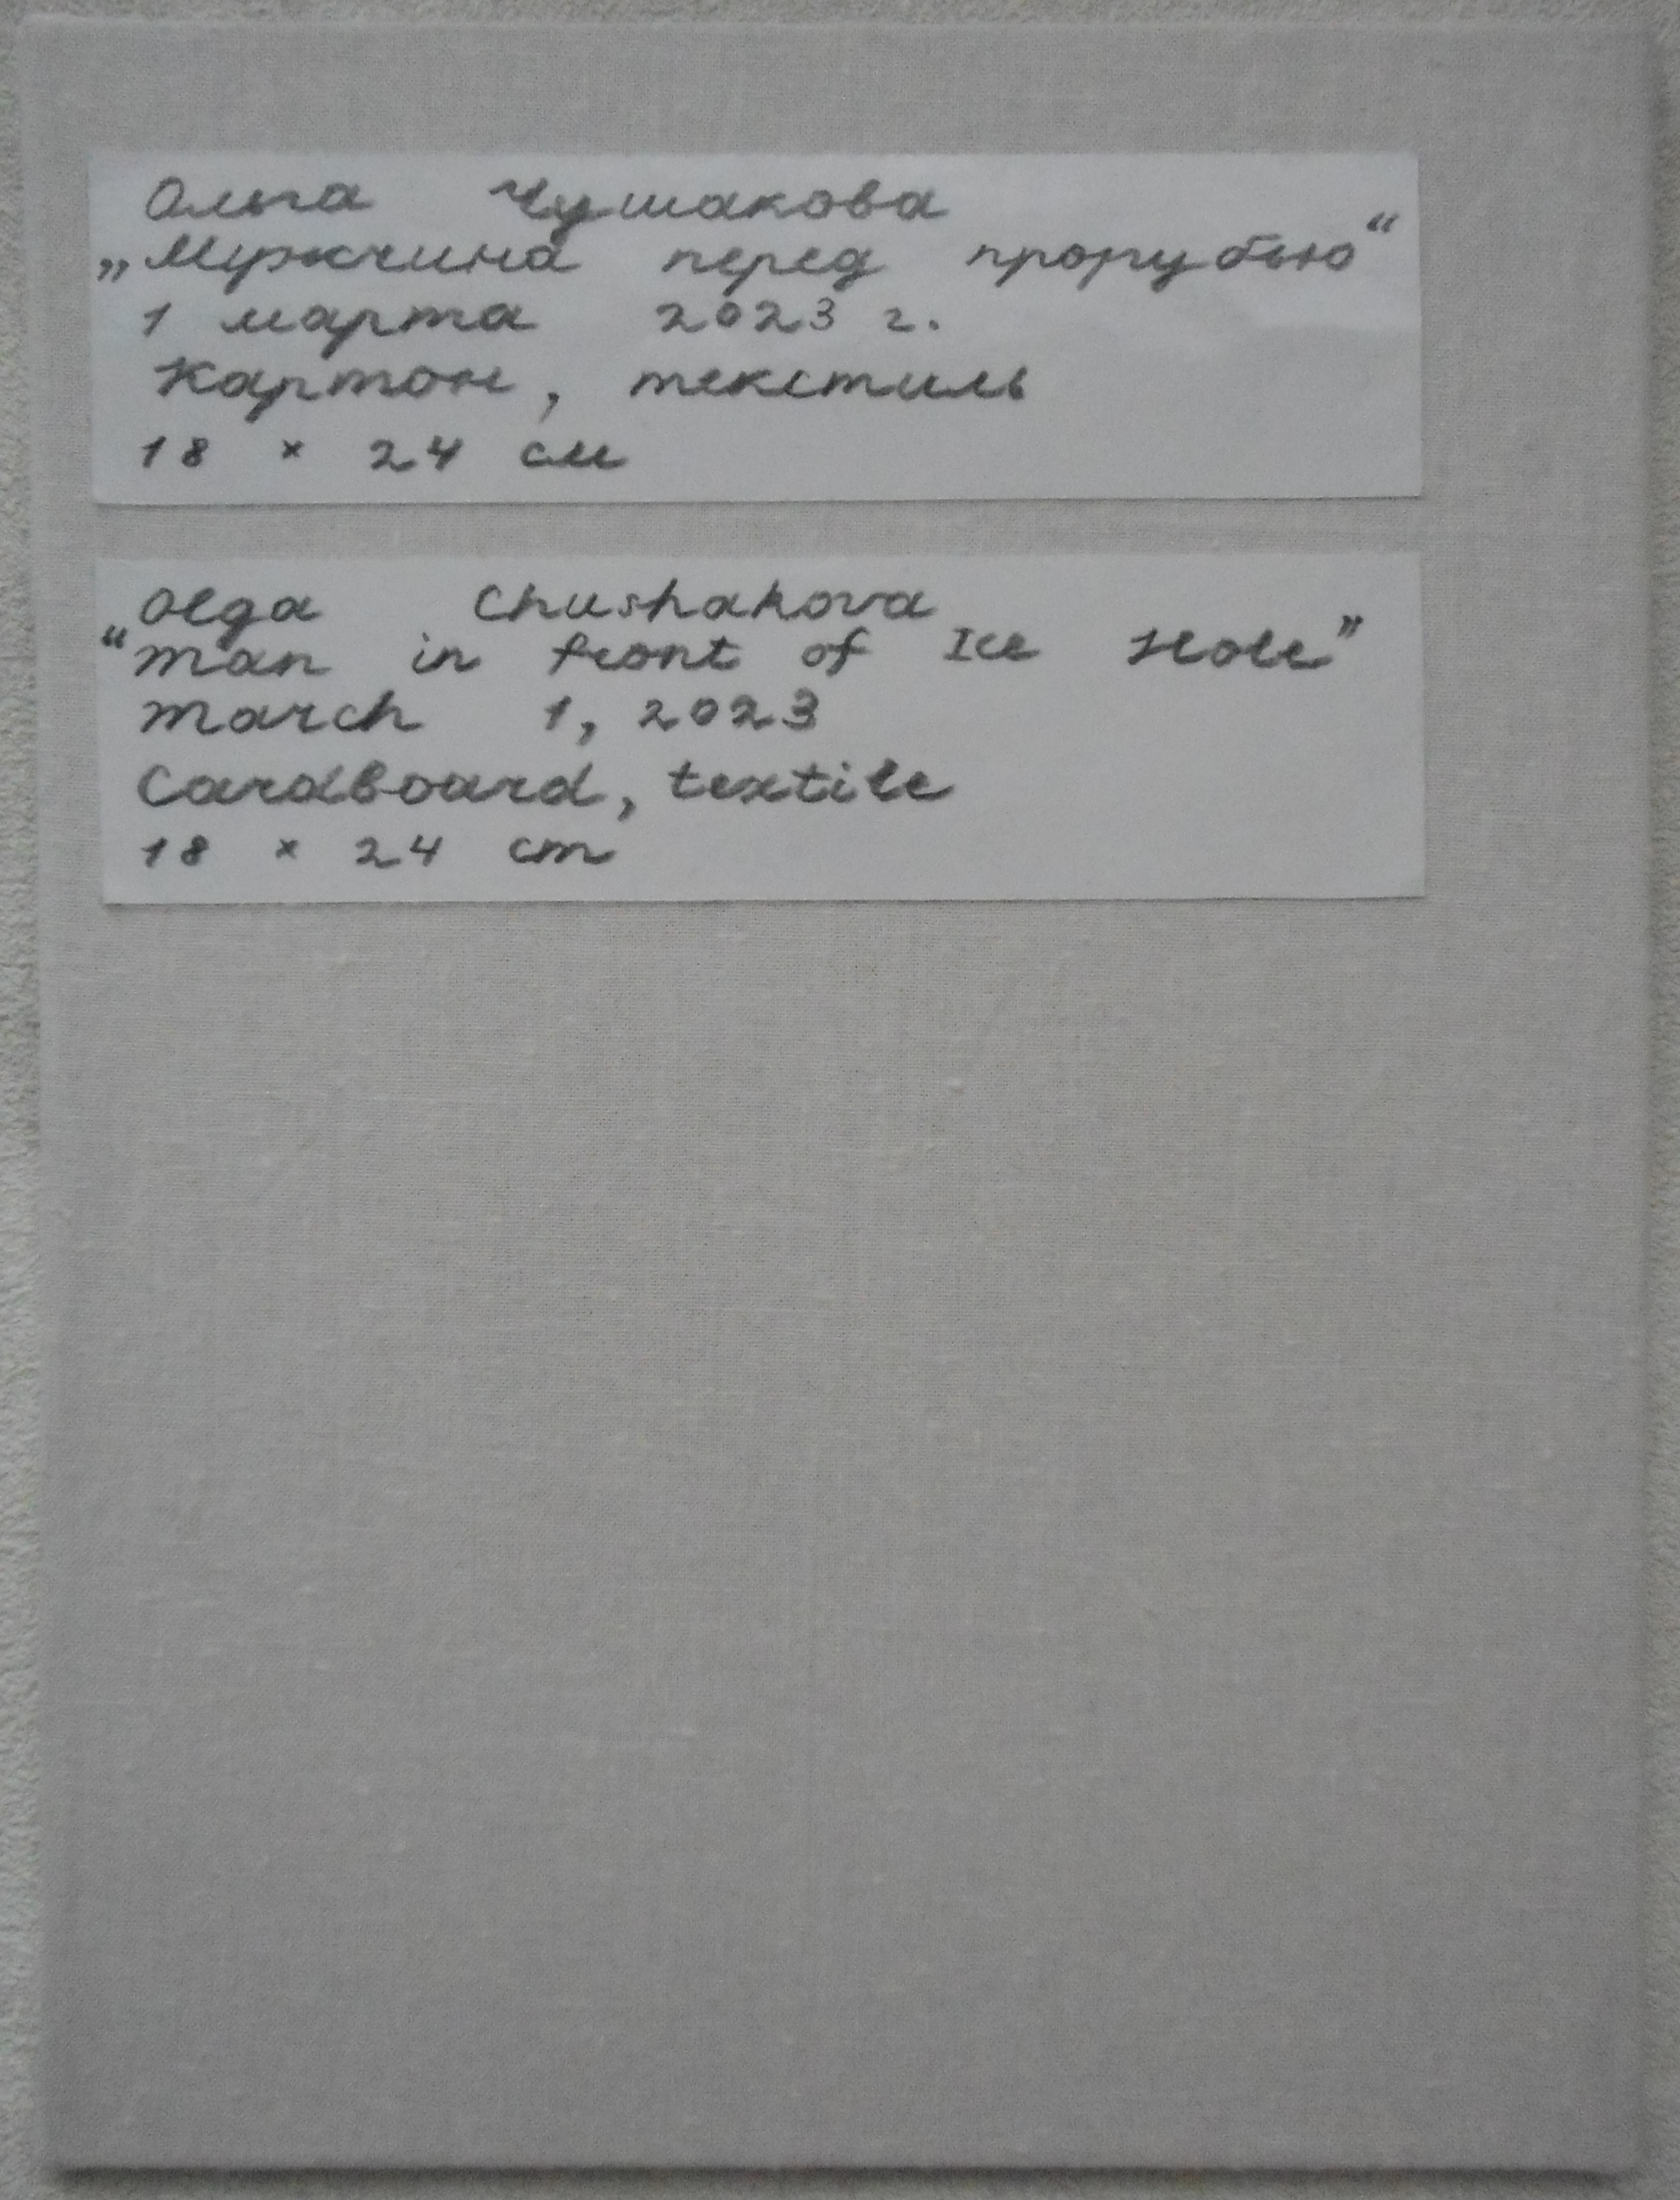 Ольга Чушакова
„Мужчина перед прорубью“
1 марта 2023 г.
Картон, текстиль
18 × 24 см
Olga Chushakova
“Man in front of Ice Hole”
March 1, 2023
Cardboard, textile
18 × 24 cm